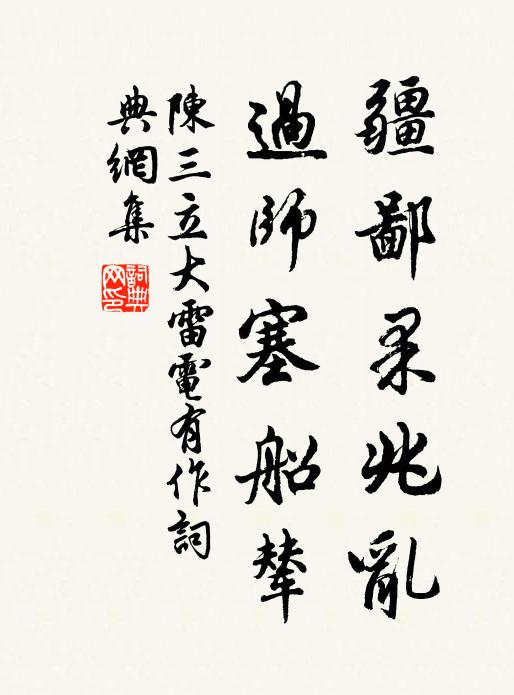 疆鄙柔兆亂
過師塞船輦
陳三立大雷電有作詞
典網集
詞典網印